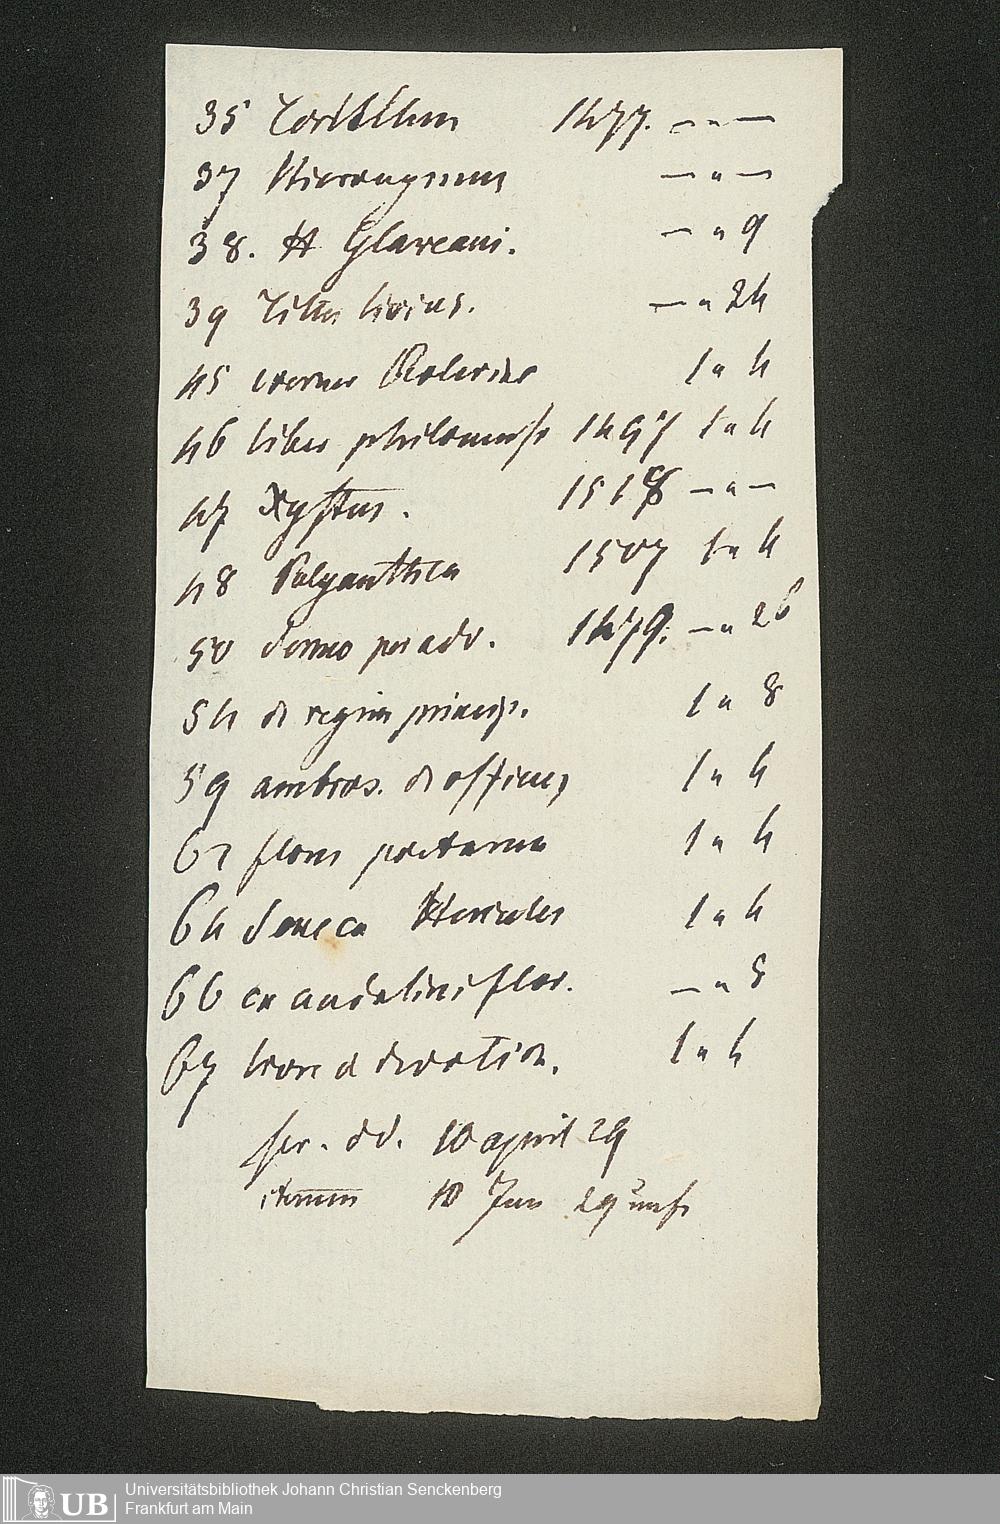 35 1477. – " –
37 Hieronymus – " –
38. H Glareani. – " 9
39 Titus livius. – " 24
45 1 " 4
46 liber 1497 1 " 4
47 Xystus. 1518 – " –
48 Polyanthea 1507 1 " 4
50 1479. – " 26
54 de regim princip. 1 " 8
59 ambros. de officiis 1 " 4
62 flores poetarum 1 " 4
64 Seneca Hercules 1 " 4
66 – " 5
67 1 " 4
scr. dd. 10 april 29
iterum 10 Jun 29
Universitätsbibliothek Johann Christian Senckenberg
Frankfurt am Main
UB